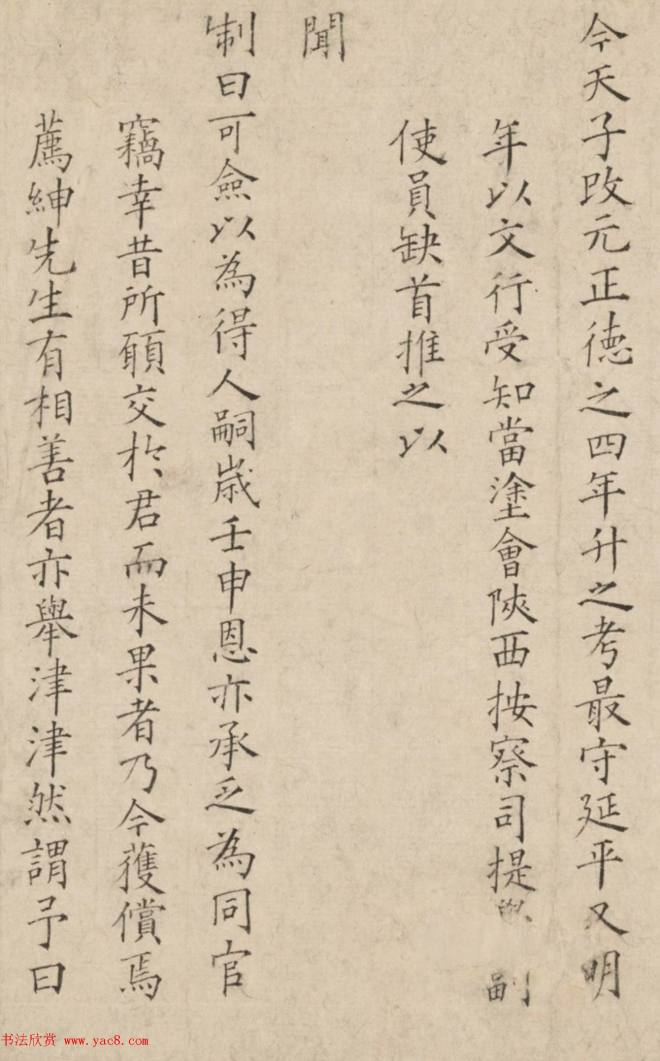 今天子改元正德之四年升之考最守延平又明
年以文行受知當塗會陝西按察司提副
使員缺首推之以
聞
制曰可僉以為得人嗣歲壬申恩亦承乏為同官
竊幸昔所願交於君而未果者乃今獲償焉
薦紳先生有相善者亦舉津津然謂予曰
书法欣赏 www.yac8.com